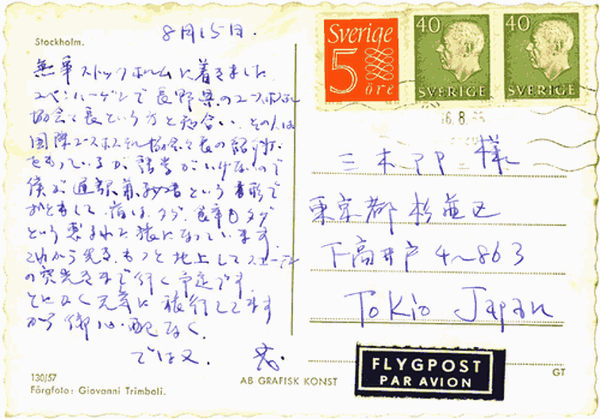 8月15日.
Stockholm.
無事ストックホルムに着きました
コペンハーゲンで長野県のユースホステル
協会々長という方と知合い、その人は
国際ユースホステル協会々長の紹介状
をもっているが語学がいけないので
僕が通訳兼秘書という書形で
おともして宿はタダ、食事もタダ
という恵まれた旅になっています
これから先も、もっと北上してスエーデン
の突先きまで行く予定です
とにかく元気に旅行してます
から御心配なく.
では又
130/57
Färgfoto: Giovanni Trimboli.
AB GRAFISK KONST
Sverige
5
öre
40
SVERIGE
40
SVERIGE
16.8.
三木 様
東京都杉並区
下高井戸4~863
Tokio Japan
FLYGPOST
PAR AVION
GT